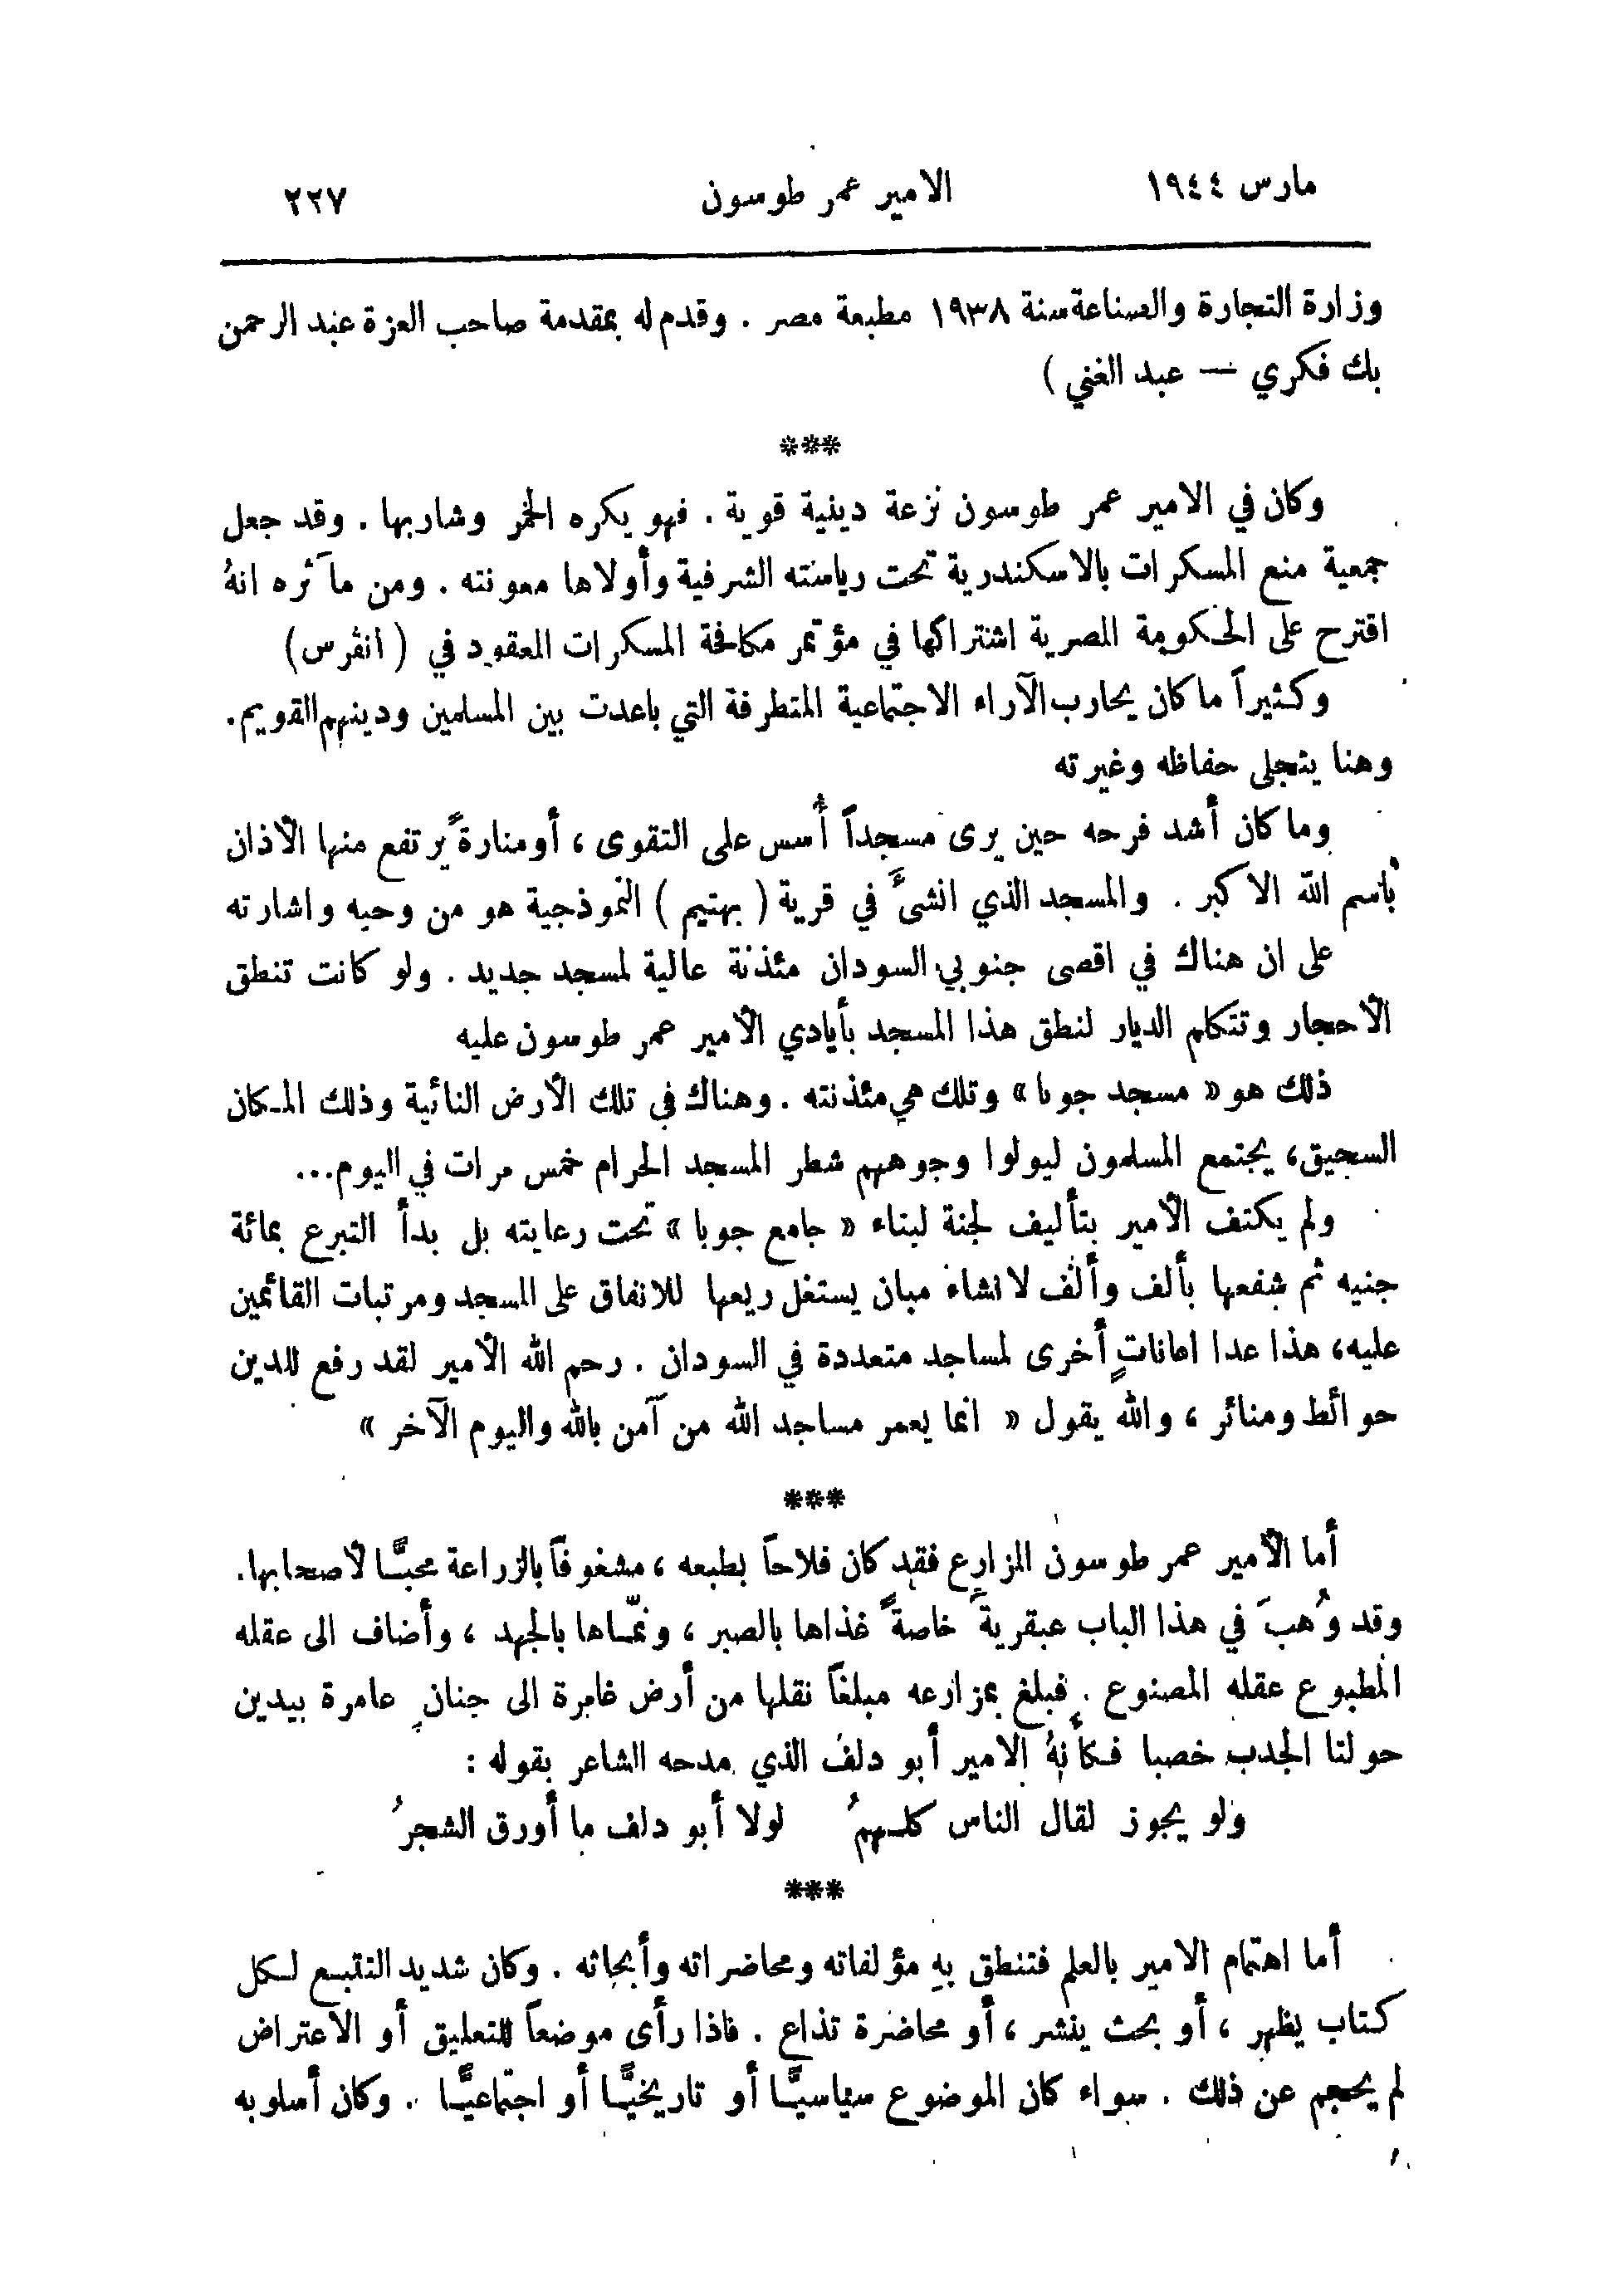 مارس ١٩٤٤ الامير عمر طوسون ٢٢٧
وزارة التجارة والصناعة سنة ١٩٣٨ مطبعة مصر . وقدم له بمقدمة صاحب العزة عبد الرحمن
بك فكري — عبد الغني )
***
وكان في الامير عمر طوسون نزعة دينية قوية . فهو يكره الخمر وشاربها . وقد جعل
جمعية منع المسكرات بالاسكندرية تحت رياسته الشرفية وأولاها معونته . ومن مآثره انهُ
اقترح على الحكومة المصرية اشتراكها في مؤتمر مكافحة المسكرات المعقود في ( انڤرس )
وكثيراً ما كان يحارب الآراء الاجتماعية المتطرفة التي باعدت بين المسلمين ودينهم القويم .
وهنا يتجلى حفاظه وغيرته
وما كان أشد فرحه حين يرى مسجداً أُسس على التقوى ، أو منارةً يرتفع منها الأذان
باسم الله الاكبر . والمسجد الذي انشئَ في قرية ( بهتيم ) النموذجية هو من وحيه واشارته
على ان هناك في اقصى جنوبي السودان مئذنة عالية لمسجد جديد . ولو كانت تنطق
الأحجار وتتكلم الديار لنطق هذا المسجد بأيادي الأمير عمر طوسون عليه
ذلك هو « مسجد جوبا » وتلك هي مئذنته . وهناك في تلك الأرض النائية وذلك المكان
السحيق، يجتمع المسلمون ليولوا وجوههم شطر المسجد الحرام خمس مرات في اليوم...
ولم يكتف الأمير بتأليف لجنة لبناء « جامع جوبا » تحت رعايته بل بدأ التبرع بمائة
جنيه ثم شفعها بألف وألف لانشاء مبان يستغل ريعها للانفاق على المسجد ومرتبات القائمين
عليه، هذا عدا اعاناتٍ أخرى لمساجد متعددة في السودان . رحم الله الأمير لقد رفع للدين
حوائط ومنائر ، والله يقول « انما يعمر مساجد الله من آمن بالله واليوم الآخر »
***
أما الأمير عمر طوسون المزارع فقد كان فلاحاً بطبعه ، مشغوفاً بالزراعة محبًّا لأصحابها.
وقد وُهبَ في هذا الباب عبقريةً خاصةً غذاها بالصبر ، ونمّاها بالجهد ، وأضاف الى عقله
المطبوع عقله المصنوع . فبلغ بمزارعه مبلغاً نقلها من أرض غامرة الى جنانٍ عامرة بيدين
حولتا الجدب خصبا فكأنهُ الامير أبو دلف الذي مدحه الشاعر بقوله :
ولو يجوز لقال الناس كلهمُ لولا أبو دلف ما أورق الشجرُ
***
أما اهتمام الامير بالعلم فتنطق بهِ مؤلفاته ومحاضراته وأبحاثه . وكان شديد التتبع لكل
كتاب يظهر ، أو بحث ينشر ، أو محاضرة تذاع . فاذا رأى موضعاً للتعليق أو الاعتراض
لم يحجم عن ذلك . سواء كان الموضوع سياسيًّا أو تاريخيًّا أو اجتماعيًّا . وكان أسلوبه